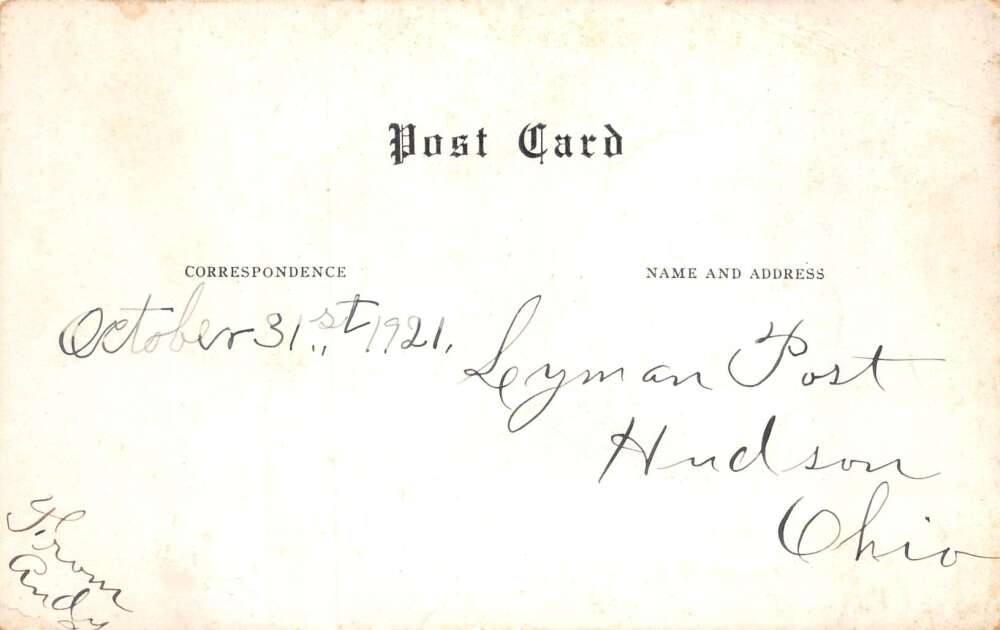 Post Card
CORRESPONDENCE
NAME AND ADDRESS
October 31,st, 1921,
Lyman Post
Hudson
Ohio
From
Andy